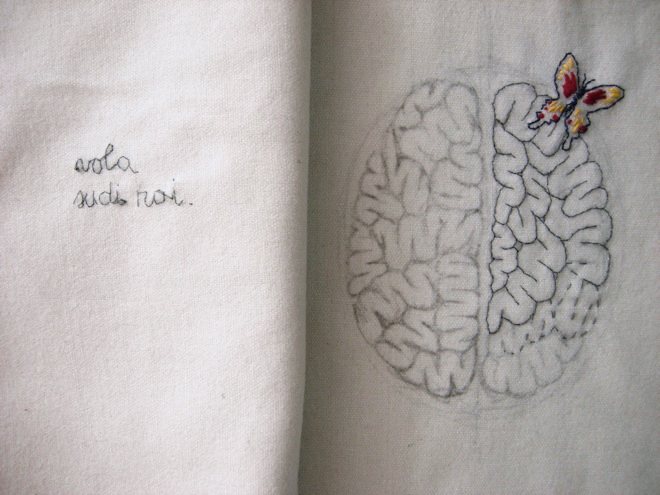 vola
su di noi.